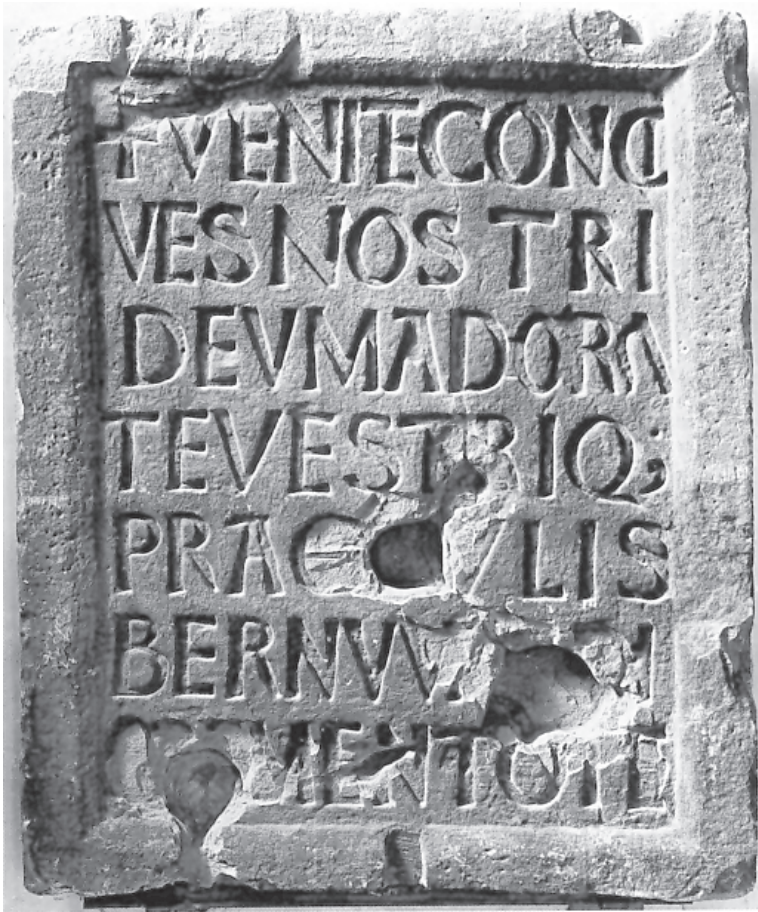 +VENITECONCI
VESNOSTRI
DEVMADORA
TEVESTRIQ;
PRAE VLIS
BERNVV I
MENTOTE